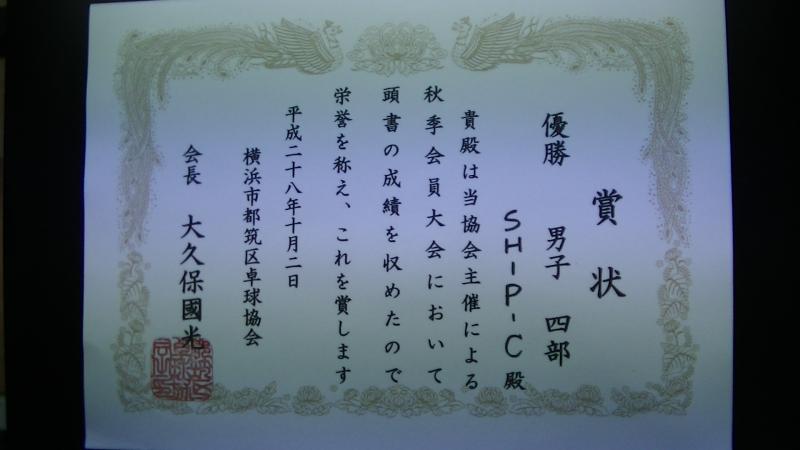 賞状
優勝 男子 四部
SHIP-C殿
貴殿は当協会主催による
秋季会員大会において
頭書の成績を収めたので
栄誉を称え、これを賞します
平成二十八年十月二日
横浜市都筑区卓球協会
会長 大久保國光